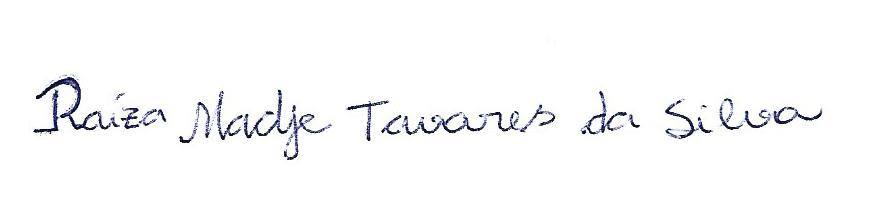 Raíza Madje Tavares da Silva